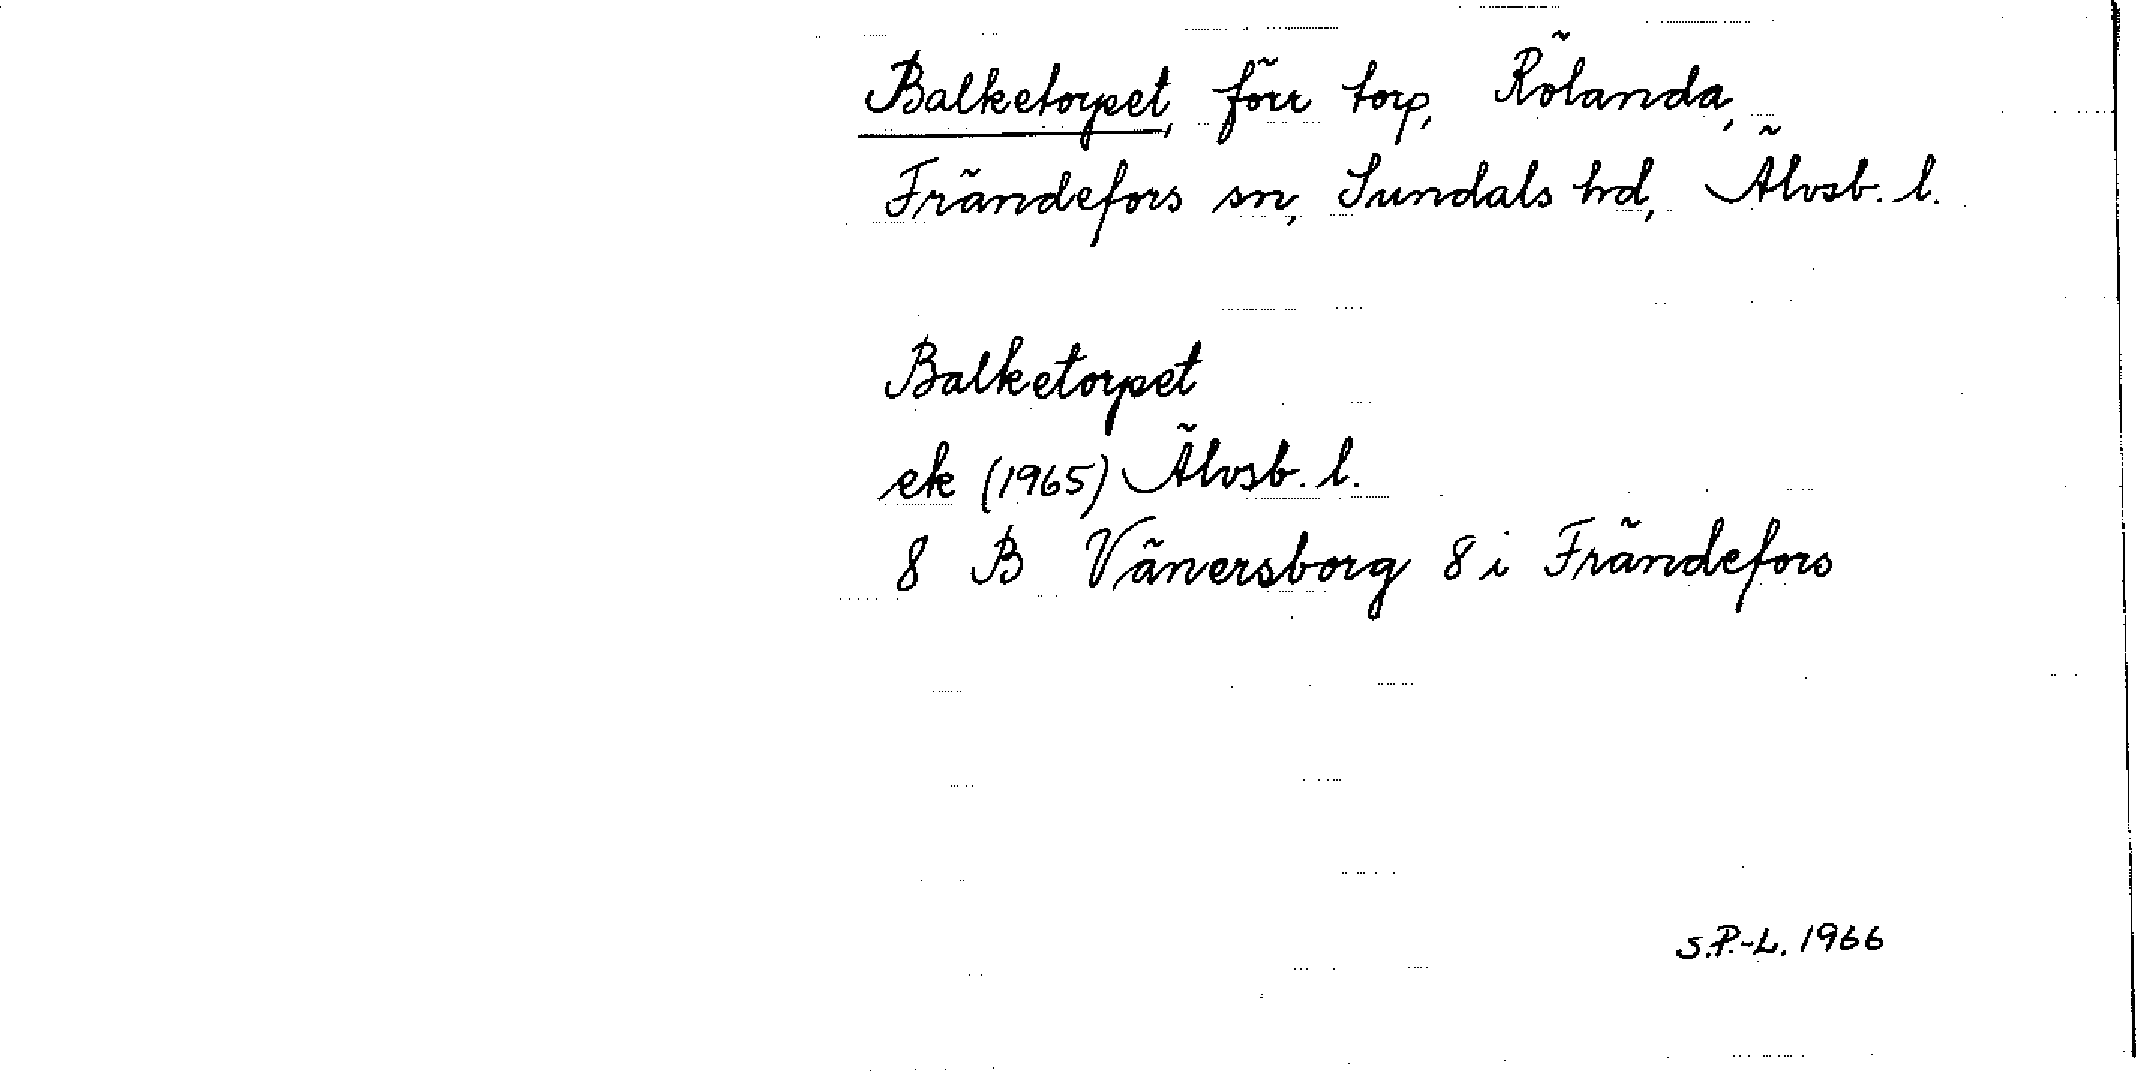 Balketorpet, förr torp, Rölanda,
Frändefors sn, Sundals hd, Älvsb. l.
Balketorpet
ek (1965) Älvsb. l.
8 B Vänersborg 8 i Frändefors
S.P.-L. 1966